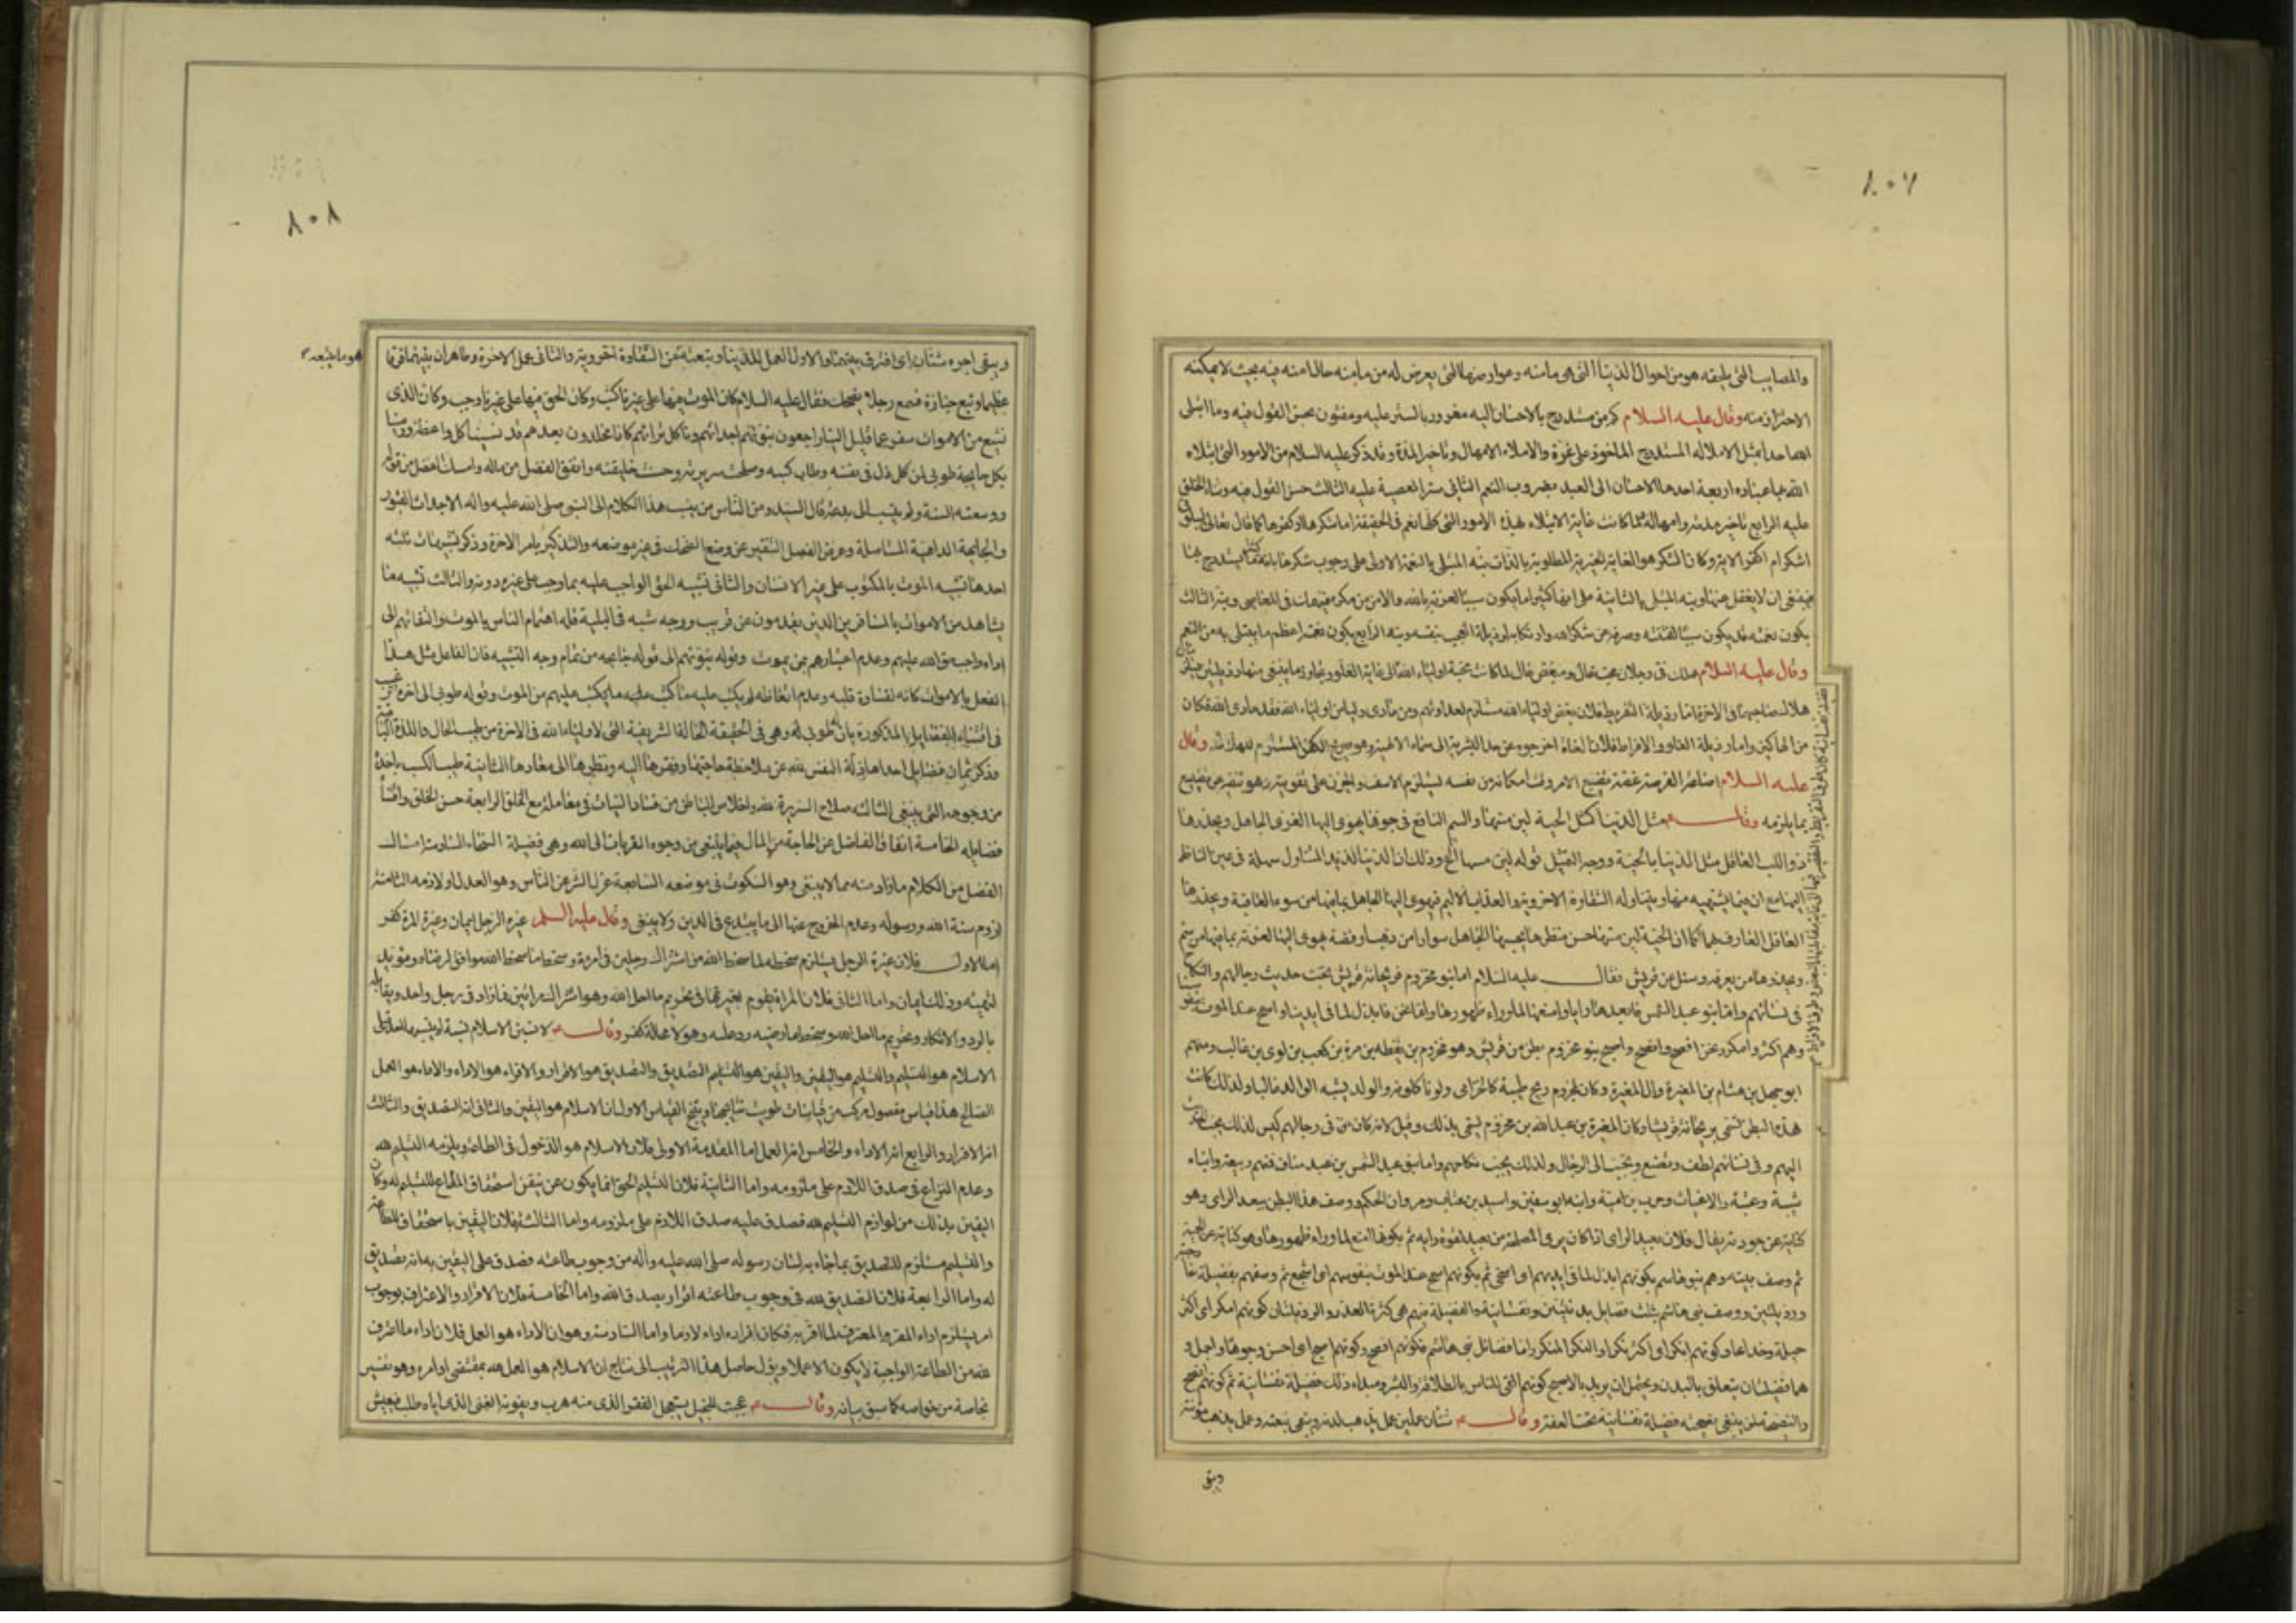 ٨٠٧
والمصايب التى يليقه هو من احوال الدنيا التى هى مامنه وعوارضها التى يعرض له من مامنه حالا منه فيه بحيث لا يمكنه
الاحتراز منه وقال عليه السلام كم من مستدرج بالاحسان اليه مغرور بالستر عليه ومفتون بحسن القول فيه وما ابتلى
الله احدا بمثل الاملاء له المستدرج الماخوذ على غرة والاملاء الامهال وتاخير المدة وقد ذكر عليه السلام من الامور التى ابتلاء
الله بها عباده اربعة احدها الاحسان الى العبد بضروب النعم الثانى ستر المعصية عليه الثالث حسن القول فيه وثناء الخلق
عليه الرابع تاخير مدته وامهاله كانت غاية الابتلاء بهذه الامور التى كلها نعم فى الحقيقة اما شكرها او كفرها كما قال تعالى ليبلونى
اشكر ام اكفر الاية وكان الشكر هو الغاية الخيرية المطلوبة بالذات نبّه المبتلى بالنعمة الاولى على وجوب شكرها بانه يستدرج بها
فينبغى ان لا يغفل عنها ونبه المبتلى بالثانية على انها كثيرا ما يكون سببا لغرته بالله والامن من مكره فينهمك فى المعاصى ونبه الثالث
يكون نعمته قد يكون سببا لفتنته وصرفه عن شكر الله وارتكابه لرذيلة العجب بنفسه ونبه الرابع بكون نعمته اعظم ما يبتلى به من النعم
وقال عليه السلام هلك فى رجلان محب غال ومبغض قال لما كانت محبة اولياء الله الى غاية الغلو وتجاوز ما ينبغى منها رذيلتين
هلاك صاحبهما فى الاخرة اما رذيلة التفريط فلان بغض اولياء الله مستلزم لعداوتهم ومن عادى وليا من اولياء الله فقد عادى الله فكان
من الهالكين واما رذيلة الغلو والافراط فلان الغلاة اخرجوه عن حد البشرية الى سماء الالهية وهو صريح الكفر المستلزم للهلاك وقال
عليه السلام اضاعة الفرصة غصة تضيع الامر وقت امكانه من نفسه ليستلزم الاسف والحزن على تفويته وهو تنفير عن تضييع
بما يلزمه وقال ع مثل الدنيا كمثل الحية لين مسها والسم الناقع فى جوفها يهوى اليها الغر الجاهل ويحذرها
ذو اللب العاقل مثل الدنيا بالحية ووجه التمثيل قوله لين مسها الخ وذلك ان الدنيا لذيذ المتناول سهلة فى عين الناظر
اليها مع ان فيما يشتهيه منها ويتناوله الشقاوة الاخروية والعذاب الاليم فيهوى اليها الجاهل بما فيها من سوء العاقبة ويحذرها
العاقل العارف بها كما ان الحية لين مسها حسن منظرها يحسبها الجاهل سوارا من ذهب او فضة يهوى اليها لغرته بما فيها من سم
ويحذرها من يعرفه وسئل عن قريش فقال عليه السلام اما بنو مخزوم فريحانة قريش يحب حديث رجالهم والنكاح
فى نسائهم واما بنو عبد الشمس فابعدها رايا وامنعها لما وراء ظهورها واما نحن فابذل لما فى ايدينا واسمح عند الموت بنفوسنا
وهم اكثر وامكر ونحن افصح وانصح واصبح بنو مخزوم بطن من قريش وهو مخزوم بن يقظه بن مرة بن كعب بن لوى بن غالب ومنهم
ابو جهل بن هشام بن المغيرة وال المغيرة وكان لمخزوم ريح طيبة كالخزامى ولونا كلونه والولد يشبه الوالد غالبا ولذلك كانت
هذا البطن تسمى بريحانة قريش وكان المغيرة بن عبد الله بن مخزوم يسمى بذلك وقيل لانه كان فى رجالهم كيس لذلك يحب
اليهم وفى نسائهم لطف وتصنع وتحبب الى الرجال ولذلك يحب نكاحهم واما بنو عبد الشمس بن عبد مناف فمنهم ربيعة وابناه
شيبة وعتبة والاعياث وحرب بن امية وابنه ابو سفين واسيد بن عتاب ومروان الحكم ووصف هذا البطن ببعد الراى وهو
كناية عن جودته يقال فلان بعيد الراى اذا كان يرى المصلحة من بعيد لقوة رايه ثم بكونها امنع لما وراء ظهورها وهو كناية عن الحمية
ثم وصف بيته وهم بنو هاشم بكونهم ابذل لما فى ايديهم اى اسخى ثم بكونهم اسمح عند الموت بنفوسهم اى اشجع ثم وصفهم بفضيلة
ورذيلتين ووصف بنى هاشم بثلث فضايل بدنيتين ونفسانية والفضيلة منهم هى كثرة العدد والرذيلتان كونهم امكر اى اكثر
حيلة وخداعا وكونهم انكر اى اكثر نكرا والنكر المنكر واما فضائل بنى هاشم فكونهم افصح وكونهم اصبح اى احسن وجوها واجمل و
هما فضيلتان يتعلق بالبدن ويحتمل ان يريد بالاصبح كونهم القى للناس بالطلاقة والبشر ومبداء ذلك فضيلة نفسانية ثم كونهم انصح
والنصيحة لمن ينبغى نصيحته فضيلة نفسانية تحت العفة وقال ع شتان عملين عمل يذهب لذته ويبقى تبعته وعمل يذهب مؤنته
ويبقى
٨٠٨
ويبقى اجره شتان اى افترق بينهما والاول العمل للدنيا وتبعته من الشقاوة اخروية والثانى عمل الاخرة وظاهر ان بينهما فرقا
هو ما يتبعه
عظيما وتبع جنازة فسمع رجلا يضحك فقال عليه السلام كان الموت فيها على غيرنا كتب وكان الحق فيها على غيرنا وجب وكان الذى
نشيع من الاموات سفر عما قليل الينا راجعون نبوّئهم اجداثهم وناكل تراثهم كانا مخلدون بعدهم قد نسينا كل واعظ ورمينا
بكل جايحة طوبى لمن ذل فى نفسه وطاب كسبه وصلحت سريرته وحسنت خليقته وانفق الفضل من ماله وامسك الفضل من قوله
ووسعته السنة ولم ينسب الى بدعة قال السيد ومن الناس من ينسب هذا الكلام الى النبى صلى الله عليه واله الاجداث القبور
والجايحة الداهية المستاصلة وغرض الفصل التنفير عن وضع الضحك فى غير موضعه والتذكير بامر الاخرة وذكر تشبيهات ثلثه
احدها تشبيه الموت بالمكتوب على غير الانسان والثانى تشبيه الحق الواجب عليه بما وجب على غيره دونه والثالث تشبيه ما
يشاهد من الاموات بالمسافرين الذين يقدمون عن قريب ووجه شبه قالبلية قلة اهتمام الناس بالموت والتفاتهم الى
اداء واجب حق الله عليهم وعدم اعتبارهم بمن يموت وقوله نبوئهم الى قوله جايحه من تمام وجه التشبيه فان الفاعل مثل هذا
الفعل بالاموات كانه لقساوة قلبه وعدم اتعاظه لم يكتب عليه ما كتب عليهم من الموت وقوله طوبى الى اخره ترغيب
فى اقتناء الفضايل المذكورة بان طوبى له وهى فى الحقيقة الحالة الشريفة التى لاولياء الله فى الاخرة من طيب الحال واللذة
وذكر ثمان فضايل احداها ذلة النفس لله عن ملاحظة حاجتها وفقرها اليه ونظرها الى معادها الثانية طيب الكسب باخذه
من وجوهه التى ينبغى الثالثه صلاح السريرة لله واخلاص الباطن من فساد النيات فى معاملته مع الخلق الرابعة حسن الخلق
فضايله الخامسة انفاق الفاضل عن الحاجة من المال فيما ينبغى من وجوه القربات الى الله وهى فضيلة السخاء السادسة امساك
الفضل من الكلام ما زاد منه مما لا ينبغى وهو السكوت فى موضعه السابعة عزل الشر عن الناس وهو العدل او لازمه الثامنة
لزوم سنة الله ورسوله وعدم الخروج عنها الى ما يبتدع فى الدين ولا ينبغى وقال عليه السلم غيرة الرجل ايمان وغيرة المرة كفر
اما الاول فلان غيرة الرجل يستلزم سخطه لما سخط الله من اشتراك رجلين فى امرءة وسخط ما سخط الله موافق لرضاه ومؤيد
لنهيه وذلك ايمان واما الثانى فلان المراة يقوم بغيرتها فى تحريم ما احل الله وهو اشتراك مرائتين فما زاد فى رجل واحد ويقابله
بالرد والانكار وتحريم ما احل الله وسخط ما رضيه رد عليه وهو لا محالة كفر وقال ع لانسبن الاسلام نسبة لم ينسبها احد قبلى
الاسلام هو التسليم والتسليم هو اليقين واليقين هو التصديق والتصديق هو الاقرار والاقرار هو الاداء والاداء هو العمل
الصالح هذا قياس مفصول مركب من قياسات طويت نتايجها وينتج القياس الاول ان الاسلام هو اليقين والثانى انه التصديق والثالث
انه الاقرار والرابع انه الاداء والخامس انه العمل اما المقدمة الاولى فلان الاسلام هو الدخول فى الطاعة ويلزمه التسليم لله
وعدم النزاع فى صدق اللازم على ملزومه واما الثانية فلان التسليم الحق انما يكون عن تيقن استحقاق المطاع للتسليم له وكان
اليقين بذلك من لوازم التسليم لله فصدق عليه صدق اللازم على ملزومه واما الثالثة فلان اليقين باستحقاق الطاعة
والتسليم مستلزم للتصديق بما جاء به لسان رسوله صلى الله عليه وآله من وجوب طاعته فصدق على اليقين به انه تصديق
له واما الرابعة فلان التصديق لله فى وجوب طاعته اقرار بصدق الله واما الخامسة فلان الاقرار والاعتراف بوجوب
امر يستلزم اداء المقر والمعترف لما اقر به فكان اقراره اداء لازما واما السادسة وهو ان الاداء هو العمل فلان اداء ما اعترف
لله من الطاعة الواجبة لا يكون الا عملا ويؤل حاصل هذا الترتيب الى نتاج ان الاسلام هو العمل لله بمقتضى اوامره وهو تفسير
بخاصة من خواصه كما سبق بيانه وقال ع عجبت للبخيل يستعجل الفقر الذى منه هرب ويفوته الغنى الذى اياه طلب فيعيش